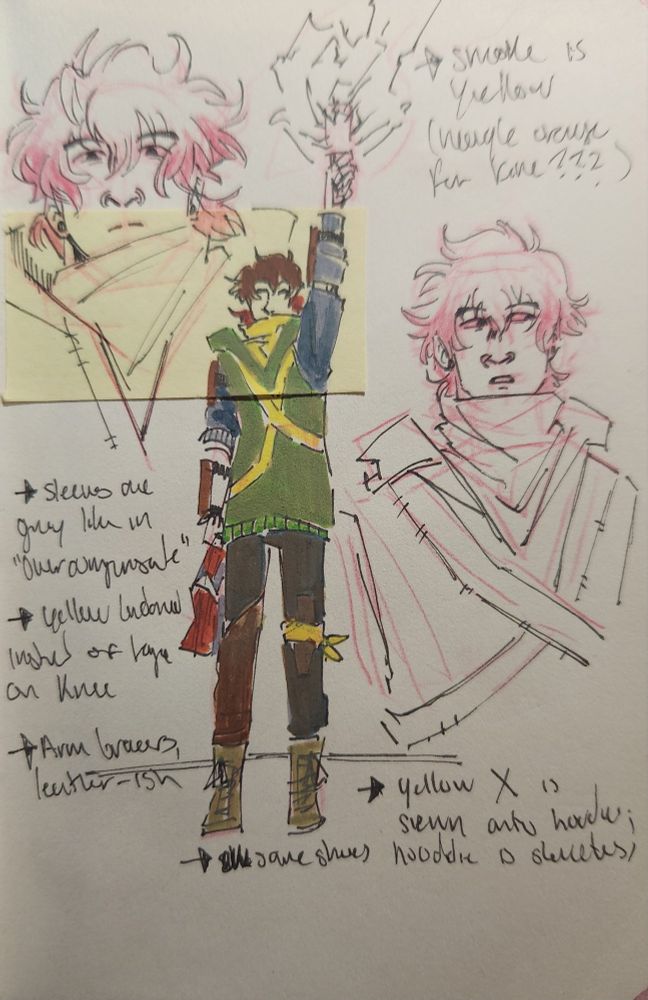 → smoke is
yellow
(maybe orange
for fire???)
→ sleeves are
grey like in
"overcompensate"
→ yellow bandana
instead of tape
on knee
→ Arm bracers,
leather-ish
→ yellow X is
sewn onto hoodie;
hoodie is sleeveless
→ same shoes